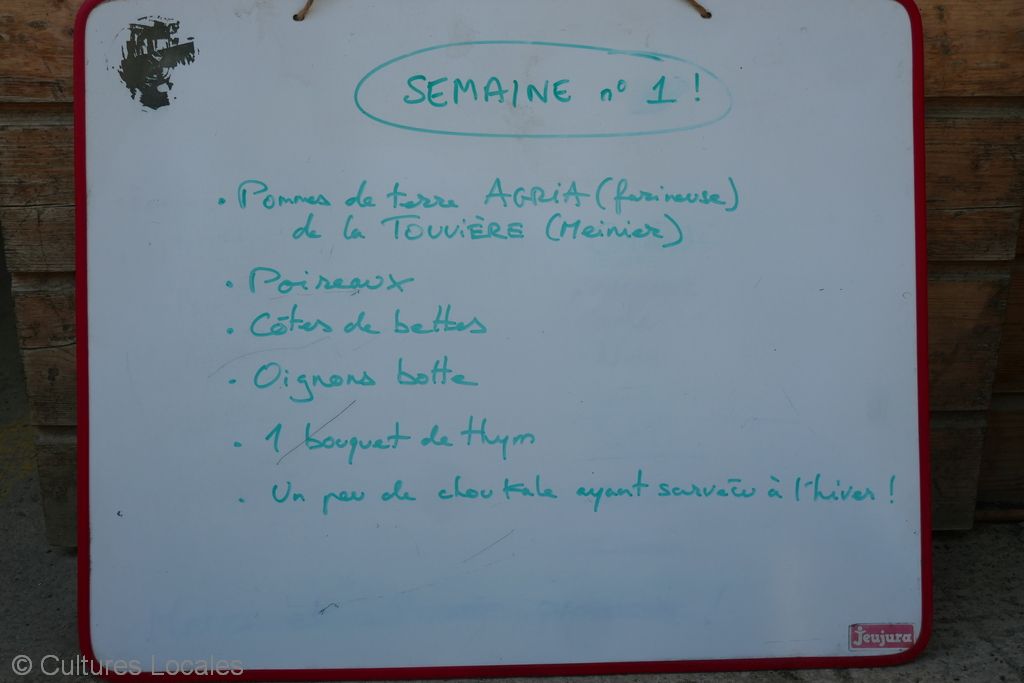 SEMAINE n° 1 !
• Pommes de terre AGRIA (farineuse)
de la TOUVIÈRE (Meinier)
• Poireaux
• Côtes de bettes
• Oignons botte
• 1 bouquet de thym
• Un peu de chou Kale ayant survécu à l'hiver !
Jeujura
© Cultures Locales